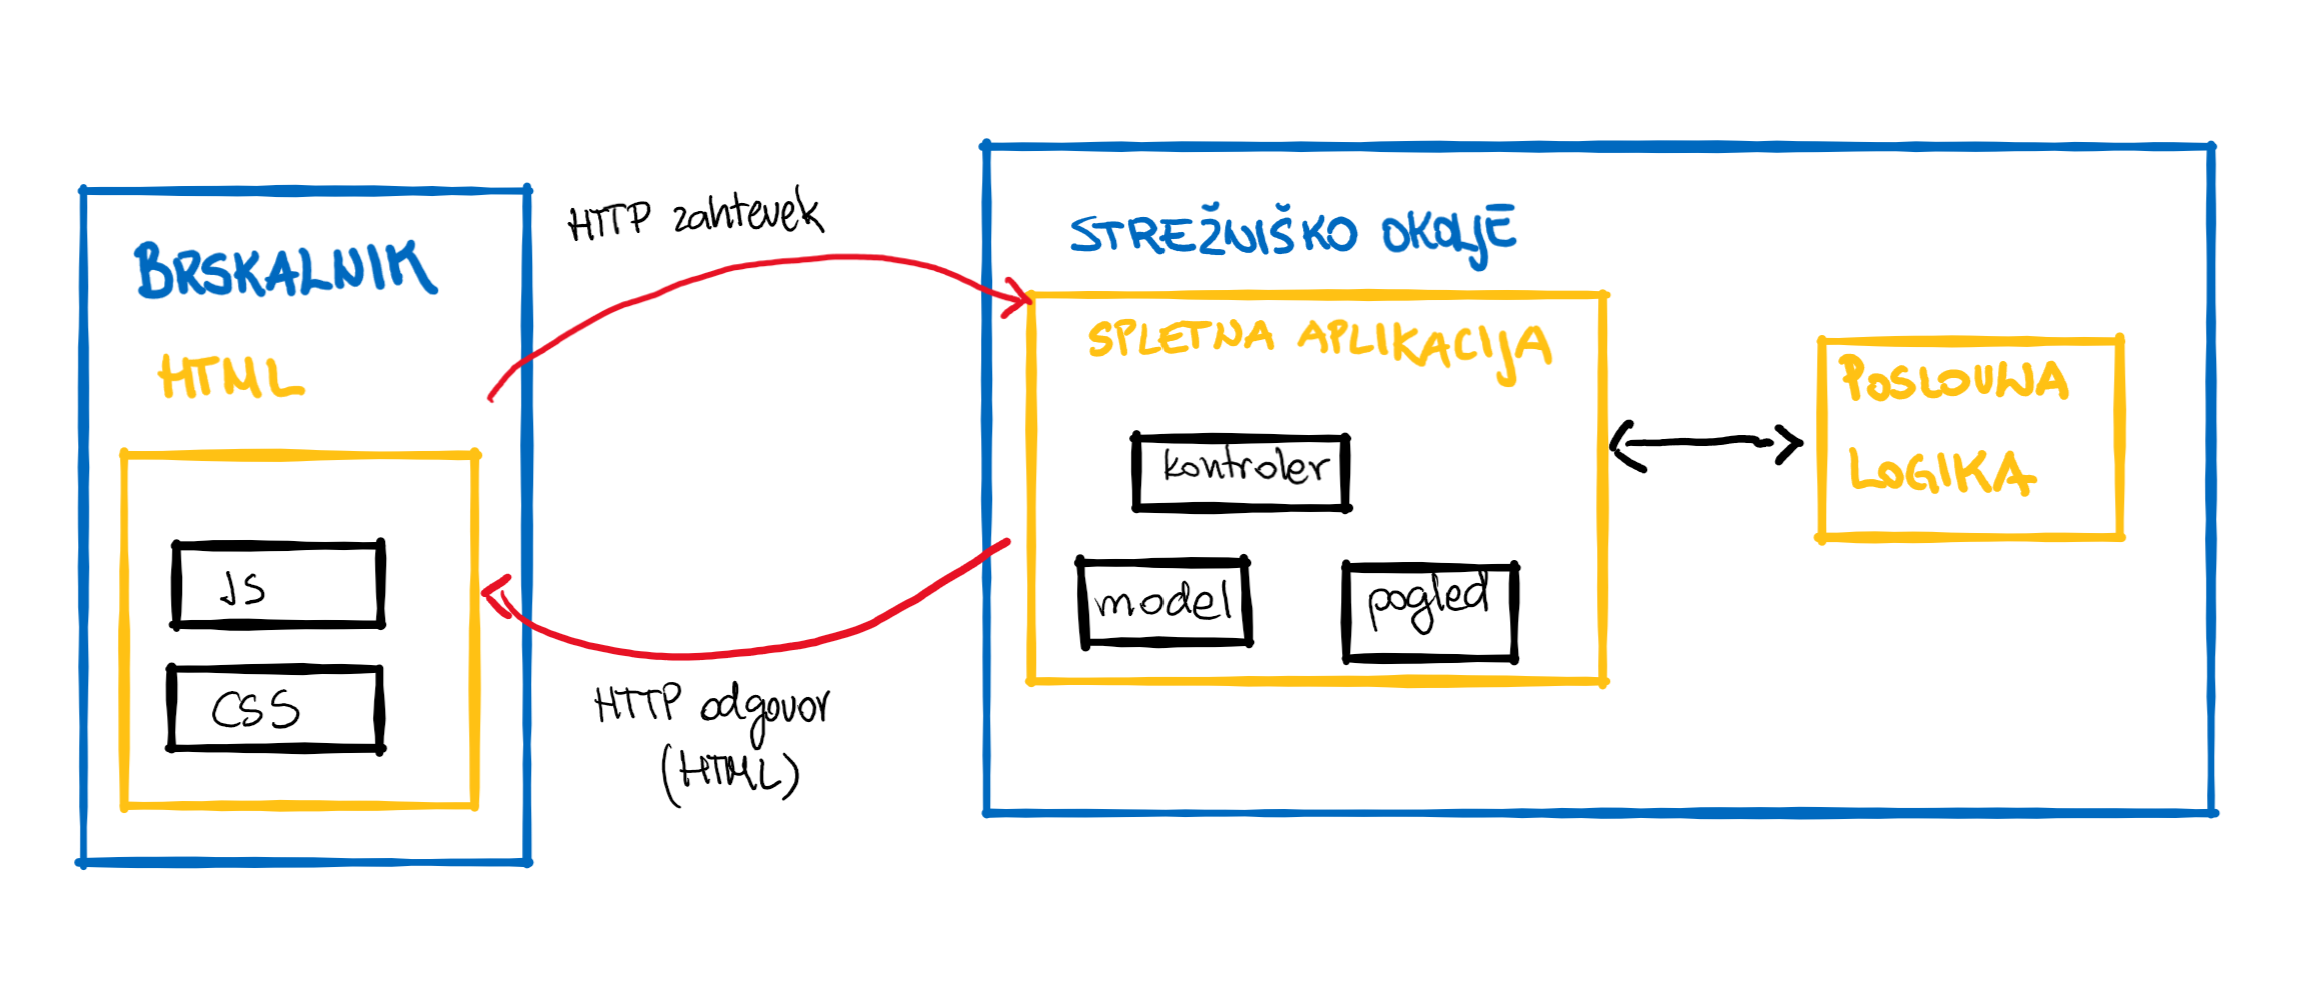 BRSKALNIK
HTML
JS
CSS
HTTP zahtevek
HTTP odgovor
(HTML)
STREŽNIŠKO OKOLJE
SPLETNA APLIKACIJA
kontroler
model
pogled
POSLOVNA
LOGIKA